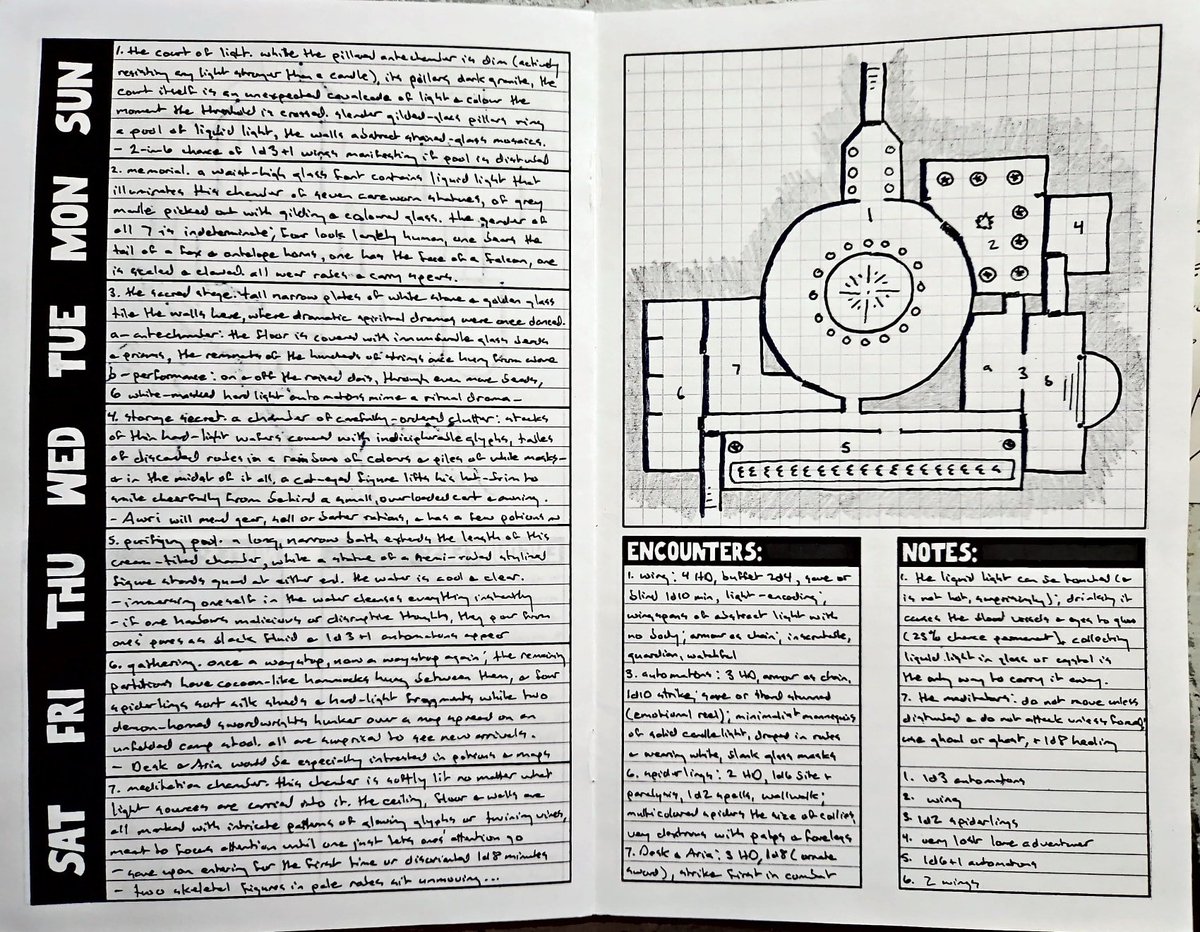 SUN
1. the court of light. while the pillared antechamber is dim (actively
resisting any light stronger than a candle), its pillars dark granite, the
court itself is an unexpected cavalcade of light & colour the
moment the threshold is crossed. slender gilded-glass pillars ring
a pool of liquid light, the walls abstract stained-glass mosaics.
- 2-in-6 chance of 1d3+1 wings manifesting if pool is disturbed
MON
2. memorial. a waist-high glass font contains liquid light that
illuminates this chamber of seven careworn statues, of grey
marble picked out with gilding & coloured glass. the gender of
all 7 is indeterminate; four look largely human, one bears the
tail of a fox & antelope horns, one has the face of a falcon, one
is scaled & clawed. all wear robes & carry spears.
TUE
3. the sacred stage. tall narrow plates of white stone & golden glass
tile the walls here, where dramatic spiritual dramas were once danced.
a - antechamber: the floor is covered with innumerable glass beads
& prisms, the remnants of the hundreds of strings once hung from above
b - performance: on & off the raised dais, through even more beads,
6 white-masked hard light automatons mime a ritual drama -
WED
4. storage secret. a chamber of carefully-ordered clutter: stacks
of thin hard-light wafers covered with indecipherable glyphs, tables
of discarded robes in a rainbow of colours & piles of white masks -
& in the midst of it all, a cat-eyed figure lifts his hat-brim to
smile cheerfully from behind a small, overloaded cart & awning.
- Awri will mend gear, sell or barter rations, & has a few potions
THU
5. purifying pool. a long, narrow bath extends the length of this
cream-tiled chamber, while a statue of a robed stylized
figure stands guard at either end. the water is cool & clear.
- immersing oneself in the water cleanses everything instantly
- if one harbours malicious or disruptive thoughts, they pour from
ones' pores as black fluid & 1d3+1 automatons appear
FRI
6. gathering. once a waystop, now a waystop again; the remaining
partitions have cocoon-like hammocks hung between them, & four
spiderlings sort silk shreds & hard-light fragments while two
demon-horned swordwrights hunker over a map spread on an
unfolded camp stool. all are surprised to see new arrivals.
- Desk & Aria would be especially interested in potions & maps
SAT
7. meditation chamber. this chamber is softly lit no matter what
light sources are carried into it. the ceiling, floor & walls are
all marked with intricate patterns of glowing glyphs or twining vines,
meant to focus attention until one just lets ones' attention go
- save upon entering for the first time or disoriented 1d8 minutes
- two skeletal figures in pale robes sit unmoving...
1
2
4
a 3 b
7
6
5
ENCOUNTERS:
1. wing: 4 HD, buffet 2d4, save or
blind 1d10 min, light-encoding;
wingspans of abstract light with
no body; armour as chain; inscrutable,
guardian, watchful
3. automatons: 3 HD, armor as chain,
1d10 strike; save or stand stunned
(emotional reel); minimalist mannequins
of solid candlelight, draped in robes
& wearing white, blank glass masks
6. spiderlings: 2 HD, 1d6 bite +
paralysis, 1d2 spells, wallwalk;
multicoloured spiders the size of collies,
very dextrous with palps & forelegs
7. Desk & Aria: 3 HD, 1d8 (ornate
sword), strike first in combat
NOTES:
1. the liquid light can be touched (&
is not hot, surprisingly); drinking it
causes the blood vessels & eyes to glow
(25% chance permanent), collecting
liquid light in glass or crystal is
the only way to carry it away.
7. the meditators: do not move unless
disturbed & do not attack unless forced;
use ghoul or ghost, + 1d8 healing
1. 1d3 automatons
2. wing
3. 1d2 spiderlings
4. very lost lone adventurer
5. 1d6+1 automatons
6. 2 wings